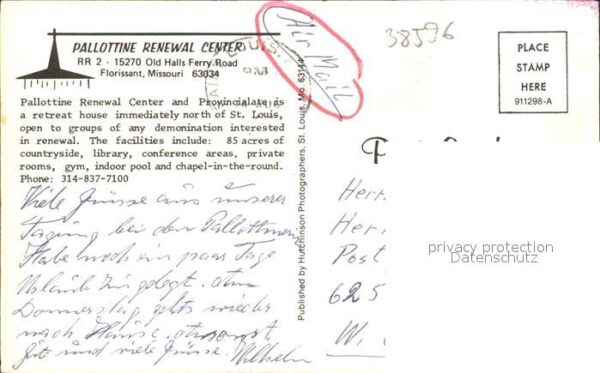 PALLOTTINE RENEWAL CENTER
RR 2 · 15270 Old Halls Ferry Road
Florissant, Missouri 63034
Pallottine Renewal Center and Provincialate is
a retreat house immediately north of St. Louis,
open to groups of any demonination interested
in renewal. The facilities include: 85 acres of
countryside, library, conference areas, private
rooms, gym, indoor pool and chapel-in-the-round.
Phone: 314-837-7100
Viele Grüsse aus unserer
Tagung bei den
Habe noch ein paar Tage
Donnerstag gehts wieder
nach Hause.
Gute und viele Grüsse. Wilhelm
Published by Hutchinson Photographers, St. Louis, Mo. 63144
Air Mail
38596
PLACE
STAMP
HERE
911298-A
Herr
Her
Post
625
W.
privacy protection
Datenschutz